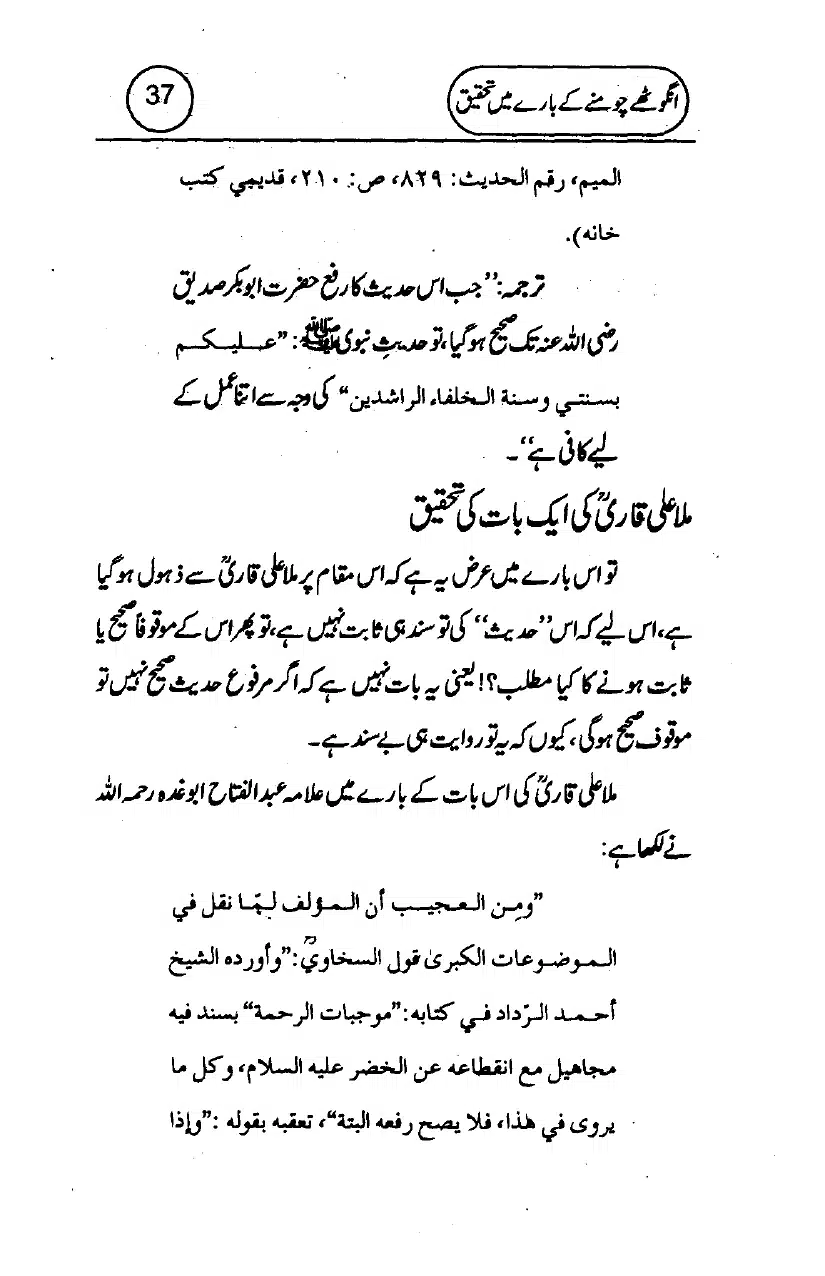 انگوٹھے چومنے کے بارے میں تحقیق
37
الميم، رقم الحديث: ٨٢٩، ص: ٢١٠، قديمي كتب
خانه).
ترجمہ: ’’جب اس حدیث کا رفع حضرت ابوبکر صدیق
رضی اللہ عنہ تک صحیح ہوگیا، تو حدیثِ نبوی ﷺ: ”عليكم
بسنتي وسنة الخلفاء الراشدين“ کی وجہ سے اتنا عمل کے
لیے کافی ہے‘‘۔
ملا علی قاریؒ کی ایک بات کی تحقیق
تو اس بارے میں عرض یہ ہے کہ اس مقام پر ملا علی قاریؒ سے ذہول ہوگیا
ہے، اس لیے کہ اس ’’حدیث‘‘ کی تو سند ہی ثابت نہیں ہے، تو پھر اس کے موقوفاً صحیح یا
ثابت ہونے کا کیا مطلب؟! یعنی یہ بات نہیں ہے کہ اگر مرفوع حدیث صحیح نہیں تو
موقوف صحیح ہوگی، کیوں کہ یہ تو روایت ہی بے سند ہے۔
ملا علی قاریؒ کی اس بات کے بارے میں علامہ عبدالفتاح ابوغدہ رحمہ اللہ
نے لکھا ہے:
”ومن العجيب أن المؤلف لمّا نقل في
الموضوعات الكبرىٰ قول السخاويؒ: ”وأورده الشيخ
أحمد الرّداد في كتابه: ”موجبات الرحمة“ بسند فيه
مجاهيل مع انقطاعه عن الخضر عليه السلام، وكل ما
يروى في هذا، فلا يصح رفعه البتة“، تعقبه بقوله: ”وإذا